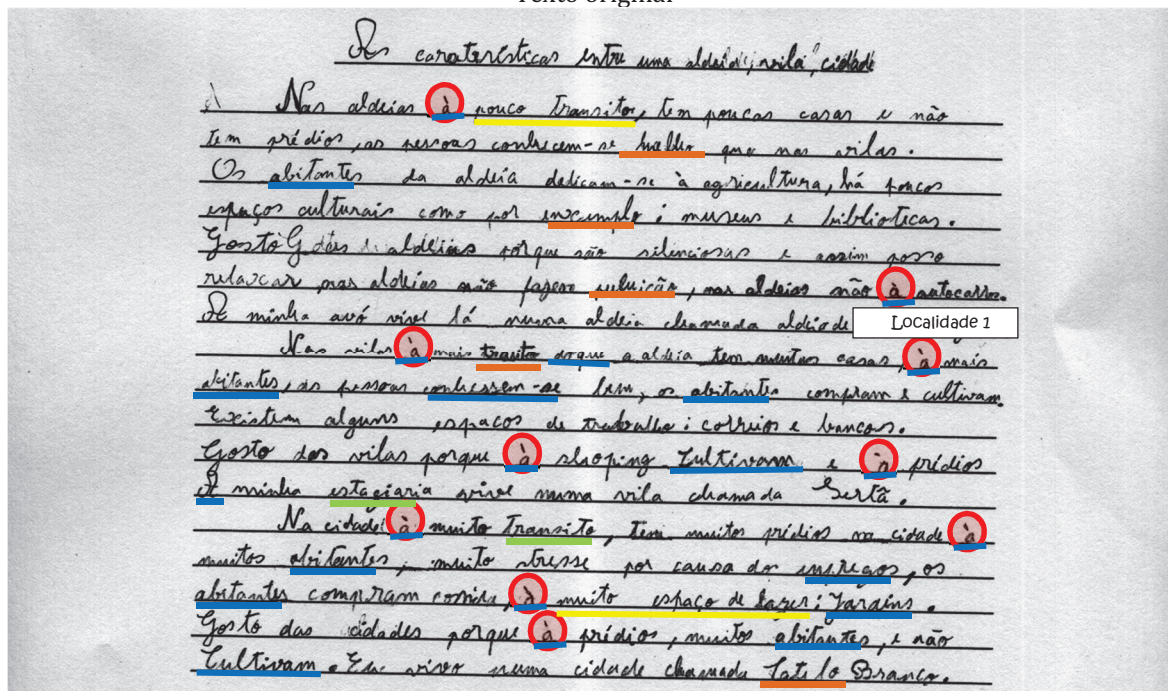 Texto original
As caraterísticas entre uma aldeia, vila, cidade
Nas aldeias à pouco transito, tem poucas casas e não
tem prédios, as pessoas conhecem-se que nas vilas.
Os abitantes da aldeia dedicam-se à agricultura, há poucos
espaços culturais como por inxemplo: museus e bibliotecas.
Gosto das aldeias porque são silenciosas e assim posso
relaxar, nas aldeias não fazem puluição, nas aldeias não à autocarros.
A minha avó vive lá numa aldeia chamada aldia de Localidade 1
Nas vilas à mais doque a aldeia tem muitas casas, à mais
abitantes, as pessoas conhessem-se bem, os abitantes compram e cultivam.
Existem alguns espacos de trabalho: correios e bancos.
Gosto das vilas porque à shoping Cultivam e à prédios
A minha estagiaria vive numa vila chamada Sertã.
Na cidade à muito transito, tem muitos prédios na cidade à
muitos abitantes, muito stresse por causa dos empregos, os
abitantes compram comida, à muito espaço de lazer: Jardins.
Gosto das cidades porque à prédios, muitos abitantes, e não
Cultivam. Eu vivo numa cidade chamada Branco.